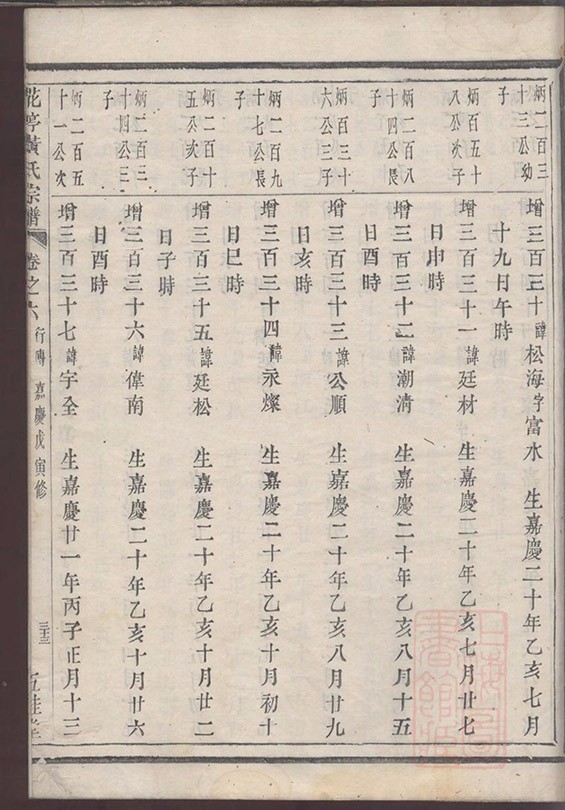 炳二百三
十三公幼
子
增三百三十諱松海字富水 生嘉慶二十年乙亥七月
十九日午時
炳百五十
八公次子
增三百三十一諱廷材 生嘉慶二十年乙亥七月廿七
日申時
炳二百八
十四公長
子
增三百三十二諱潮清 生嘉慶二十年乙亥八月十五
日酉時
炳百三十
六公三子
增三百三十三諱公順 生嘉慶二十年乙亥八月廿九
日亥時
炳二百九
十七公長
子
增三百三十四諱永燦 生嘉慶二十年乙亥十月初十
日巳時
炳二百十
五公次子
增三百三十五諱廷松 生嘉慶二十年乙亥十月廿二
日子時
炳二百三
十四公三
子
增三百三十六諱偉南 生嘉慶二十年乙亥十月廿六
日酉時
炳二百五
十一公次
增三百三十七諱字全 生嘉慶廿一年丙子正月十三
花亭黃氏宗譜 卷之六 行傳 嘉慶戊寅修 三十三 五桂堂